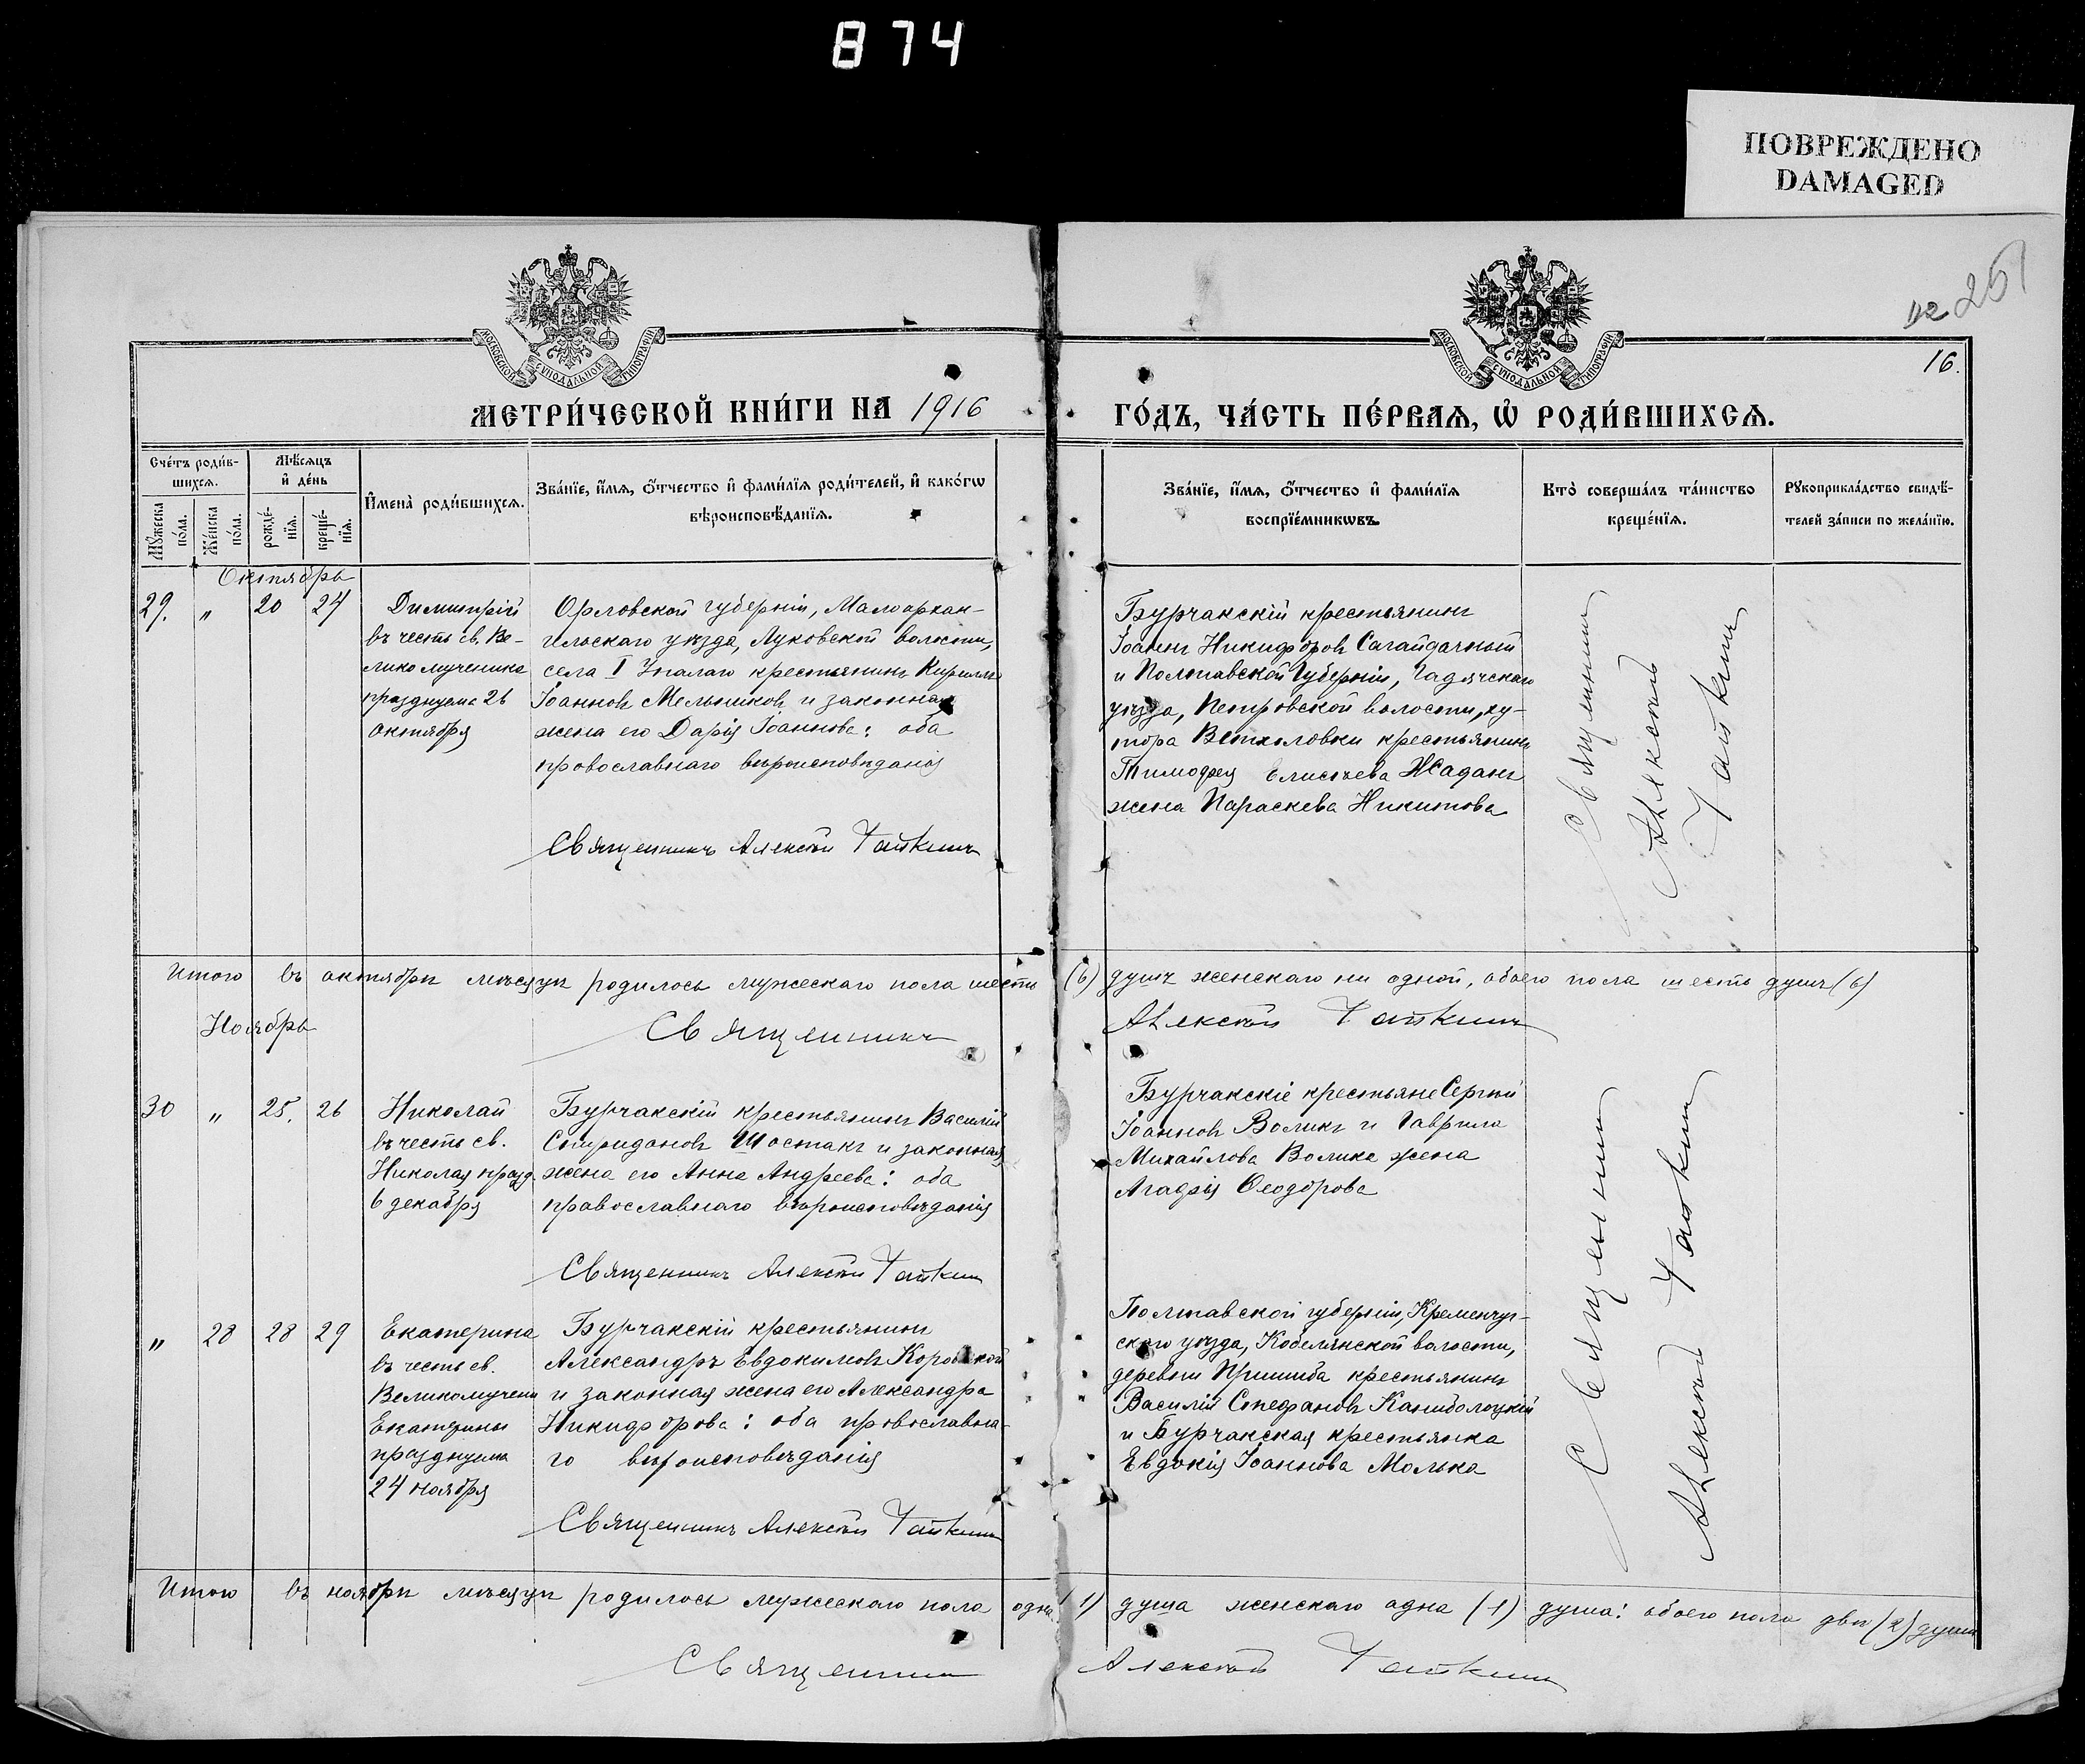 874
ПОВРЕЖДЕНО
DAMAGED
251
16.
МОСКОВСКОЙ СѴНОДАЛЬНОЙ ТИПОГРАФІИ
МОСКОВСКОЙ СѴНОДАЛЬНОЙ ТИПОГРАФІИ
МЕТРИ́ЧЕСКОЙ КНИ́ГИ НА 1916
ГО́ДЪ, ЧА́СТЬ ПЕ́РВАѦ, Ѡ҆ РОДИ́ВШИХСѦ.
Сче́тъ роди́в-
шихсѧ.
Мѣ́сѧцъ
и҆ де́нь
Мꙋ́жеска по́ла.
Же́нска по́ла.
рожде́-
нїѧ.
креще́-
нїѧ.
И҆мена̀ роди́вшихсѧ.
Зва́нїе, и҆́мѧ, ѻ҆́тчество и҆ фами́лїѧ роди́телей, и҆ како́гѡ
вѣроисповѣ́данїѧ.
Зва́нїе, и҆́мѧ, ѻ҆́тчество и҆ фами́лїѧ
воспрїе́мникѡвъ.
Кто̀ соверша́лъ та́инство
креще́нїѧ.
Рꙋкоприкла́дство свидѣ́-
телей за́писи по жела́нїю.
Октябрь
29. " 20 24
Димитрій
въ честь св. Ве-
ликомученика
празднуема 26
октября
Орловской губерніи, Малоархан-
гельскаго уѣзда, Луковской волости,
села I Упалаго крестьянинъ Кириллъ
Іоанновъ Мельниковъ и законная
жена его Дарія Іоаннова: оба
провославнаго вѣроисповѣданія
Священникъ Алексѣй Чайкинъ
Бурчакскій крестьянинъ
Іоаннъ Никифоровъ Сагайдачный
и Полтавской Губерніи, Гадячскаго
уѣзда, Петровской волости, ху-
тора Вепхоловки крестьянинъ
Тимофея Елисѣева Жаданъ
жена Параскева Никитова
Священникъ
Алексѣй
Чайкинъ
Итого въ октябрѣ мѣсяцѣ родилось мужескаго пола шесть (6) душъ женскаго ни одной, обоего пола шесть душъ (6)
Священникъ Алексѣй Чайкинъ
Ноябрь
30 " 25. 26
Николай
въ честь св.
Николая празд.
6 декабря
Бурчакскій крестьянинъ Василій
Спиридоновъ Шостакъ и законная
жена его Анна Андреева: оба
православнаго вѣроисповѣданія
Священникъ Алексѣй Чайкинъ
Бурчакскіе крестьяне Сергѣй
Іоанновъ Воликъ и Гаврила
Михайлова Волика жена
Агафія Ѳеодорова
" 28 28 29
Екатерина
въ честь св.
Великомучени
Екатерины
празднуема
24 ноября
Бурчакскій крестьянинъ
Александръ Евдокимовъ Коровкой
и законная жена его Александра
Никифорова: оба провославна-
го вѣроисповѣданія
Священникъ Алексѣй Чайкинъ
Полтавской губерніи, Кременчуг-
скаго уѣзда, Кобелянской волости,
деревни Пришиба крестьянинъ
Василій Стефановъ Каниболоцкій
и Бурчакская крестьянка
Евдокія Іоаннова Молька
Священникъ
Алексѣй Чайкинъ
Итого въ ноябрѣ мѣсяцѣ родилось мужескаго пола одна (1) душа женскаго одна (1) душа: обоего пола двѣ (2) души
Священникъ Алексѣй Чайкинъ